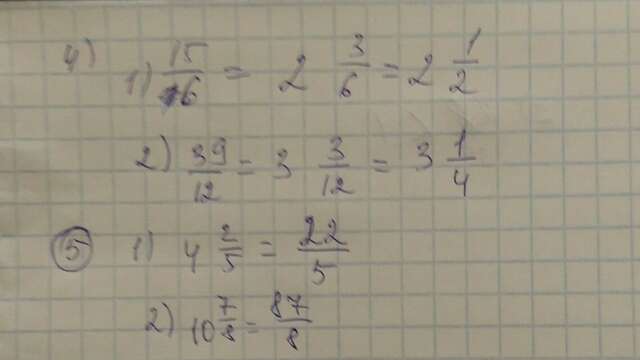 4) 1) 15/6 = 2 3/6 = 2 1/2
2) 39/12 = 3 3/12 = 3 1/4
5 1) 4 2/5 = 22/5
2) 10 7/8 = 87/8